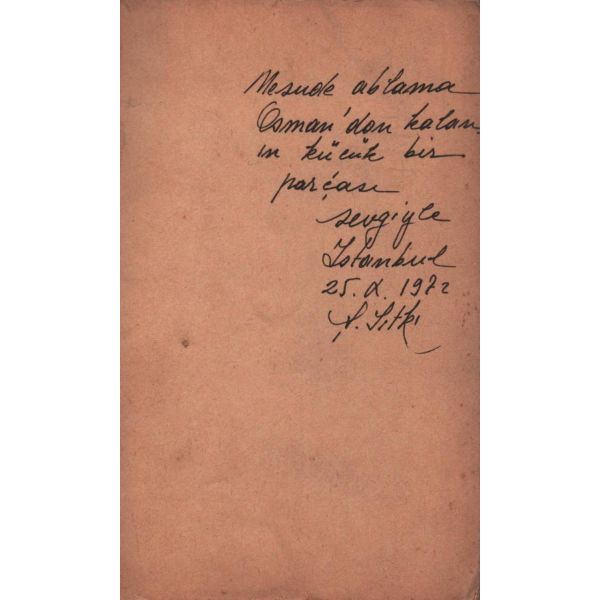 Mesude ablama
Osman'dan kalan,
ın küçük bir
parçası
sevgiyle
İstanbul
25. X. 1972
A. Sıtkı